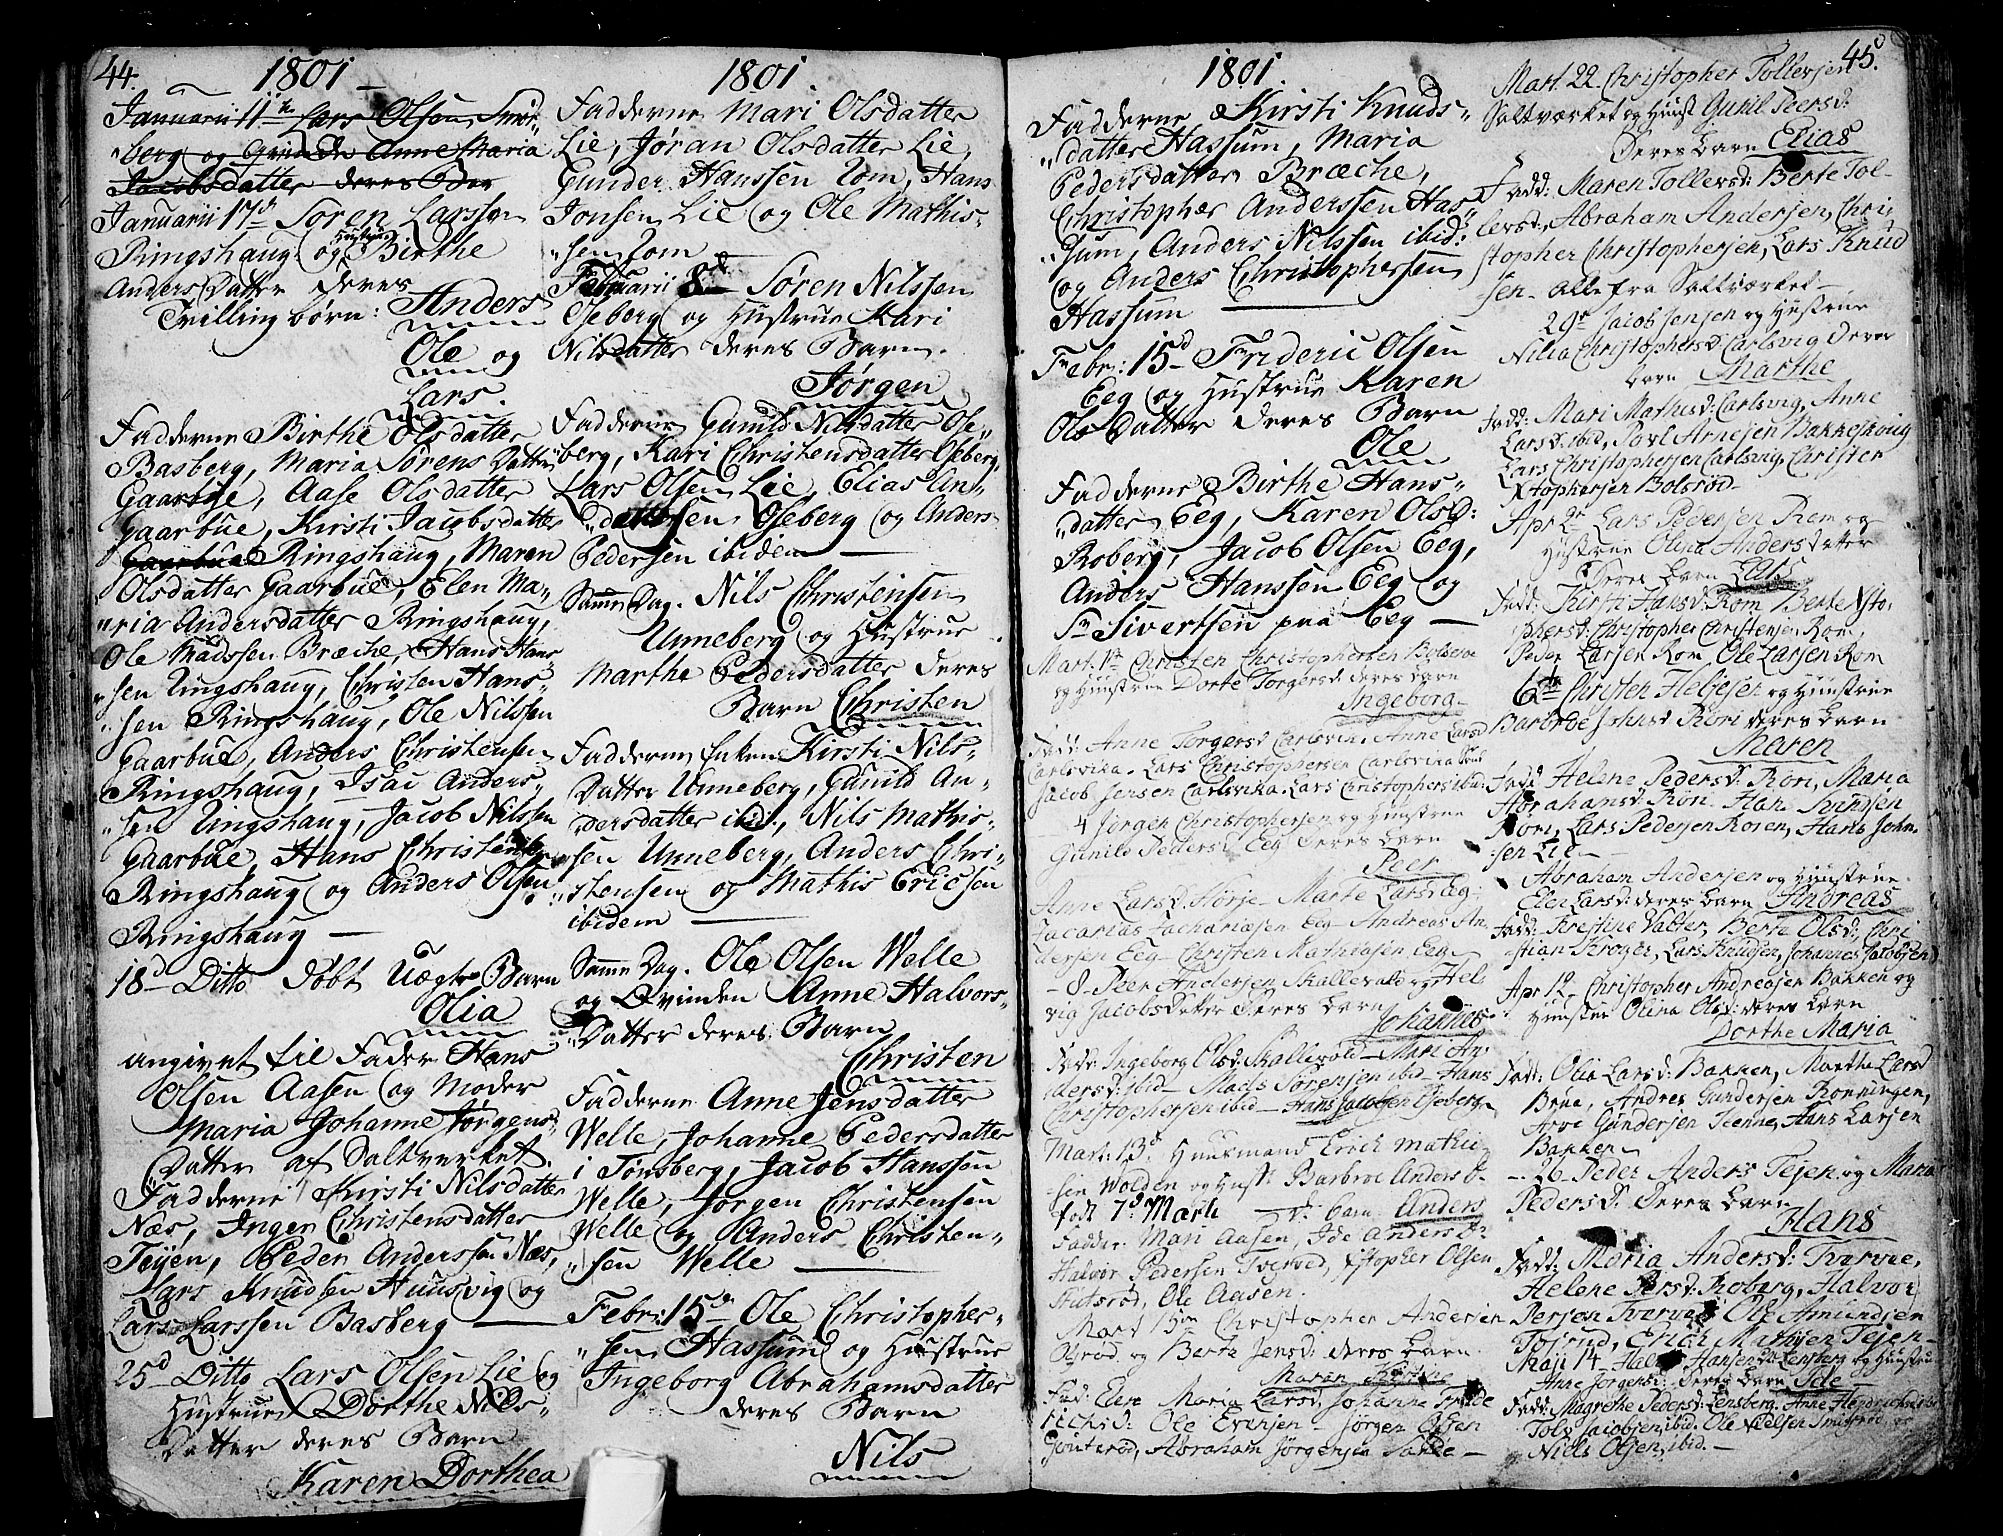 44.
1801
Januarii 11te Lars Olsen Smør-
berg og Qvinde Anne Maria
Jacobsdatter deres Barn
Januarii 17d Søren Larssen
Ringshaug og Hustrue Birthe
Anders Datter deres
Trilling børn: Anders
Ole og
Lars.
Fadderne Birthe Olsdatter
Basberg, Maria Sørens Datter
Gaarbue, Aase Olsdatter
Gaarbue, Kirsti Jacobsdatter
Gaarbue Ringshaug, Maren
Olsdatter Gaarbue, Elen Ma-
ria Andersdatter Ringshaug,
Ole Madssen Bræche, Hans Hans-
sen Ringshaug, Christen Hans-
sen Ringshaug, Ole Nilssen
Gaarbue, Anders Christensen
Ringshaug, Isac Anders-
sen Ringshaug, Jacob Nilssen
Gaarbue, Hans Christensen
Ringshaug og Anders Olsen
Ringshaug
18d Ditto døbt Uægte Barn
Olia
angivet til Fader Hans
Olsen Aasen og Moder
Maria Johanne Jørgens-
Datter af Saltverket.
Fadderne Kirsti Nilsdatter
Næs, Inger Christensdatter
Tejen, Peder Anderssen Næs,
Lars Knudsen Huusvig og
Lars Larssen Basberg
25d Ditto Lars Olsen Lie og
Hustrue Dorthe Nils-
Datter deres Barn
Karen Dorthea
1801
Fadderne Mari Olsdatter
Lie, Jøran Olsdatter Lie,
Gunder Hanssen Rom, Hans
Jonsen Lie og Ole Mathis-
sen Rom
Februarii 8de Søren Nilssen
Oseberg og Hustrue Kari
Nilsdatter deres Barn.
Jørgen
Fadderne Gunild Nilsdatter Ose-
berg, Kari Christensdatter Oseberg,
Lars Olsen Lie, Elias An-
derssen Oseberg og Anders
Pedersen ibidem
Samme Dag. Nils Christensen
Unneberg og Hustrue
Marthe Pedersdatter deres
Barn Christen
Fadderne Enken Kirsti Nils-
Datter Unneberg, Gunild An-
dersdatter ibid., Nils Mathis-
sen Unneberg, Anders Chri-
stensen og Mathis Ericsen
ibidem
Samme Dag. Ole Olsen Welle
og Qvinden Anne Halvors-
Datter deres Barn
Christen
Fadderne Anne Jensdatter
Welle, Johanne Pedersdatter
i Tønsberg, Jacob Hanssen
Welle, Jørgen Christensen
Welle og Anders Christen-
sen Welle
Febr: 15de Ole Christopher-
sen Hassum og Hustrue
Ingeborg Abrahamsdatter
deres Barn
Nils
1801.
Fadderne Kirsti Knuds-
datter Hassum, Maria
Pedersdatter Bræche,
Christopher Anderssen Has-
sum, Anders Nilssen ibid:
og Anders Christophersen
Hassum
Febr: 15d Frideric Olsen
Eeg og Hustrue Karen
Ols Datter deres Barn
Ole
Fadderne Birthe Hans-
datter Eeg, Karen Olsd:
Roberg, Jacob Olsen Eeg,
Anders Hanssen Eeg og
Sr Sivertsen paa Eeg
Mart. 1ste Christen Christophersen
og Huustrue Dorte Torgersd: deres barn
Ingeborg
Fadd: Anne Torgersd Carlsvik, Anne Larsd
Carlsvika. Lars Christophersen Carlsvika
Jacob Jensen Carlsvika. Lars Christophers: ibid
4 Jørgen Christophersen og Huustrue
Gunild Peders: Eeg deres barn
Peer
Anne Larsd. Horje - Marte Larsd Eeg
Zacarias Zachariasen Eeg - Andreas An
dersen Eeg - Christen Mathiasen Eeg -
8 Peer Andersen Skallevold og Hel
vig Jacobs Datter deres barn
Johannes
Fadd: Ingeborg Olsd: Skallevold - Mari An
dersd: ibid - Mads Sørensen ibid - Hans
Christophersen ibid - Hans Jacobsen Oseberg
Mart: 13d Huusmand Erich Mathi-
sen Wolden og Hust: Barbroe Anders D.
født 7d Marti d: barn Anders
Fadder. Mari Aasen, Ide Anders D
Halvor Pedersen Tverved, Xstopher Olsen
Stutsrød, Ole Aasen.
Mart 15de Christopher Andersen
Olsrød og Berte Jensd: deres barn
Maren
Fad: Elen Maria Larsd, Johanne Fride
richsd: Ole Evensen - Jørgen Olsen
Goutsrød, Abraham Jørgensen Sande -
45.
Mart. 22 Christopher Tollevsen
Saltværket og Huust Gunil Peersd:
deres barn Elias
Fadd: Maren Tollevsd: Berte Tol-
levsd, Abraham Andersen, Chri-
stopher Christophersen, Lars Knud
sen - alle fra Saltværket -
29de Jacob Jensen og Hustrue
Nilia Christophersd: Carlsvig deres
barn Marthe
Fadd: Mari Mathisd: Carlsvig, Anne
Larsd: ibid, Povl Arnesen Bakkeskoug
Lars Christophersen Carlsvig, Christen
Xstophersen Bolsrød -
Apr 2de Lars Pedersen Rom og
Hustrue Olina Andersdatter
deres barn Lars
Fadd: Kirsti Hansd: Rom Berte Xsto-
phersd: Christopher Christensen Rom,
Peder Larsen Rom, Ole Larsen Rom
6te Christen Helgesen og Huustrue
Barbroe Johnsd Røri deres barn
Maren
Fadd: Helene Pedersd: Røri, Maria
Abrahamsd: Røri. Hans Evindsen
Rom, Lars Pedersen Roren, Hans John-
sen Lie -
Abraham Andersen og Huustrue.
Elen Larsd: deres barn Andreas
Fadd: Kirstine Valter, Berte Olsd:, Chri
stian Kroger, Lars Knudsen, Johannes Jacobsen
Apr 12 Christopher Andreasen Bakken og
Hustrue Olina Olsd: deres barn
Dorthe Maria
Fadd: Olia Larsd: Bakken, Marthe Larsd
Brue, Andres Gundersen Rønningen,
Arve Gundersen Teenne, Hans Larsen
Bakken
26 Peder Anders Tejen og Maria
Pedersd: deres barn
Hans
Fadd: Maria Andersd: Tvervee,
Helene Persd: Roberg, Halvor
Persen Tverved Ole Amundsen
Tofsrud, Erich Mathisen Tejen
Maji 14 Halvor Hansen Lensberg og Huustru
Anne Jørgensd: deres barn Ide
Fadd: Magrethe Pedersd: Lensberg, Anne Hendrichsd ibid
Tolv Jacobsen, ibid. Ole Nielsen Smidsrød, og
Niels Olsen, ibid. -